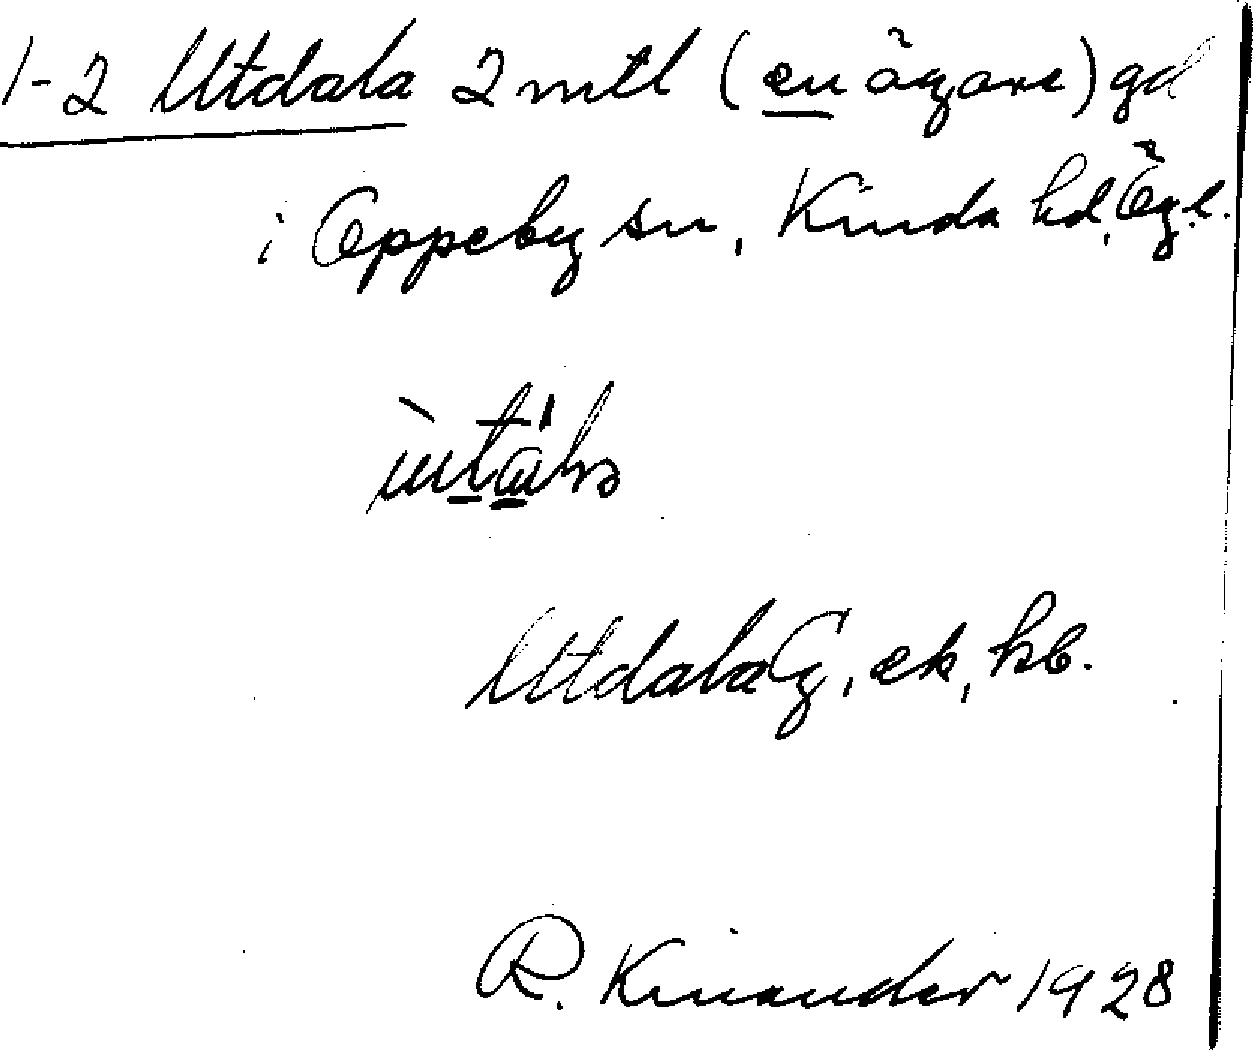 1-2 Utdala 2 mtl (en ägare) gd
i Oppeby sn, Kinda hd, Ögl.
Utdala G, ek, kb.
R. Kinander 1928